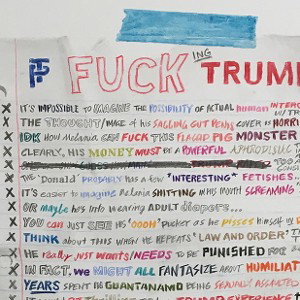 TP FUCKING TRUMP
IT'S IMPOSSIBLE TO IMAGINE THE POSSIBILITY OF ACTUAL HUMAN INTERC
THE THOUGHT/IMAGE OF HIS SAGGING GUT BEING COVER IS HORR
IDK HOW MELANIA CAN FUCK THIS FLACCID PIG MONSTER
CLEARLY, HIS MONEY MUST BE A POWERFUL APHRODISIAC
THE 'Donald' PROBABLY HAS A FEW *INTERESTING* FETISHES.
IT'S EASIER TO IMAGINE MELANIA SHITTING IN HIS MOUTH SCREAMING
OR MAYBE HE'S INTO WEARING ADULT DIAPERS...
YOU CAN JUST SEE HIS "OOOH" PUCKER AS HE PISSES HIMSELF
THINK ABOUT THIS WHEN HE REPEATS 'LAW AND ORDER' T
HE REALLY JUST WANTS/NEEDS TO BE PUNISHED FOR
IN FACT, WE MIGHT ALL FANTASIZE ABOUT HUMILIAT
YEARS SPENT IN GUANTANAMO BEING SEXUALLY ASSAULTED